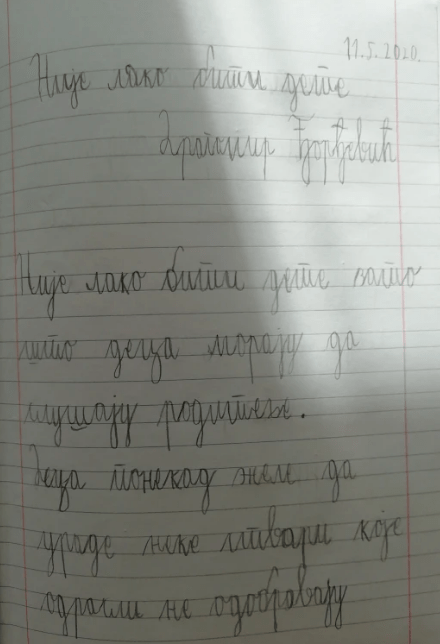 11.5.2020.
Није лако бити дете
Драгомир Ђорђевић
Није лако бити дете зато
што деца морају да
слушају родитеље.
Деца понекад желе да
ураде неке ствари које
одрасли не одобравају